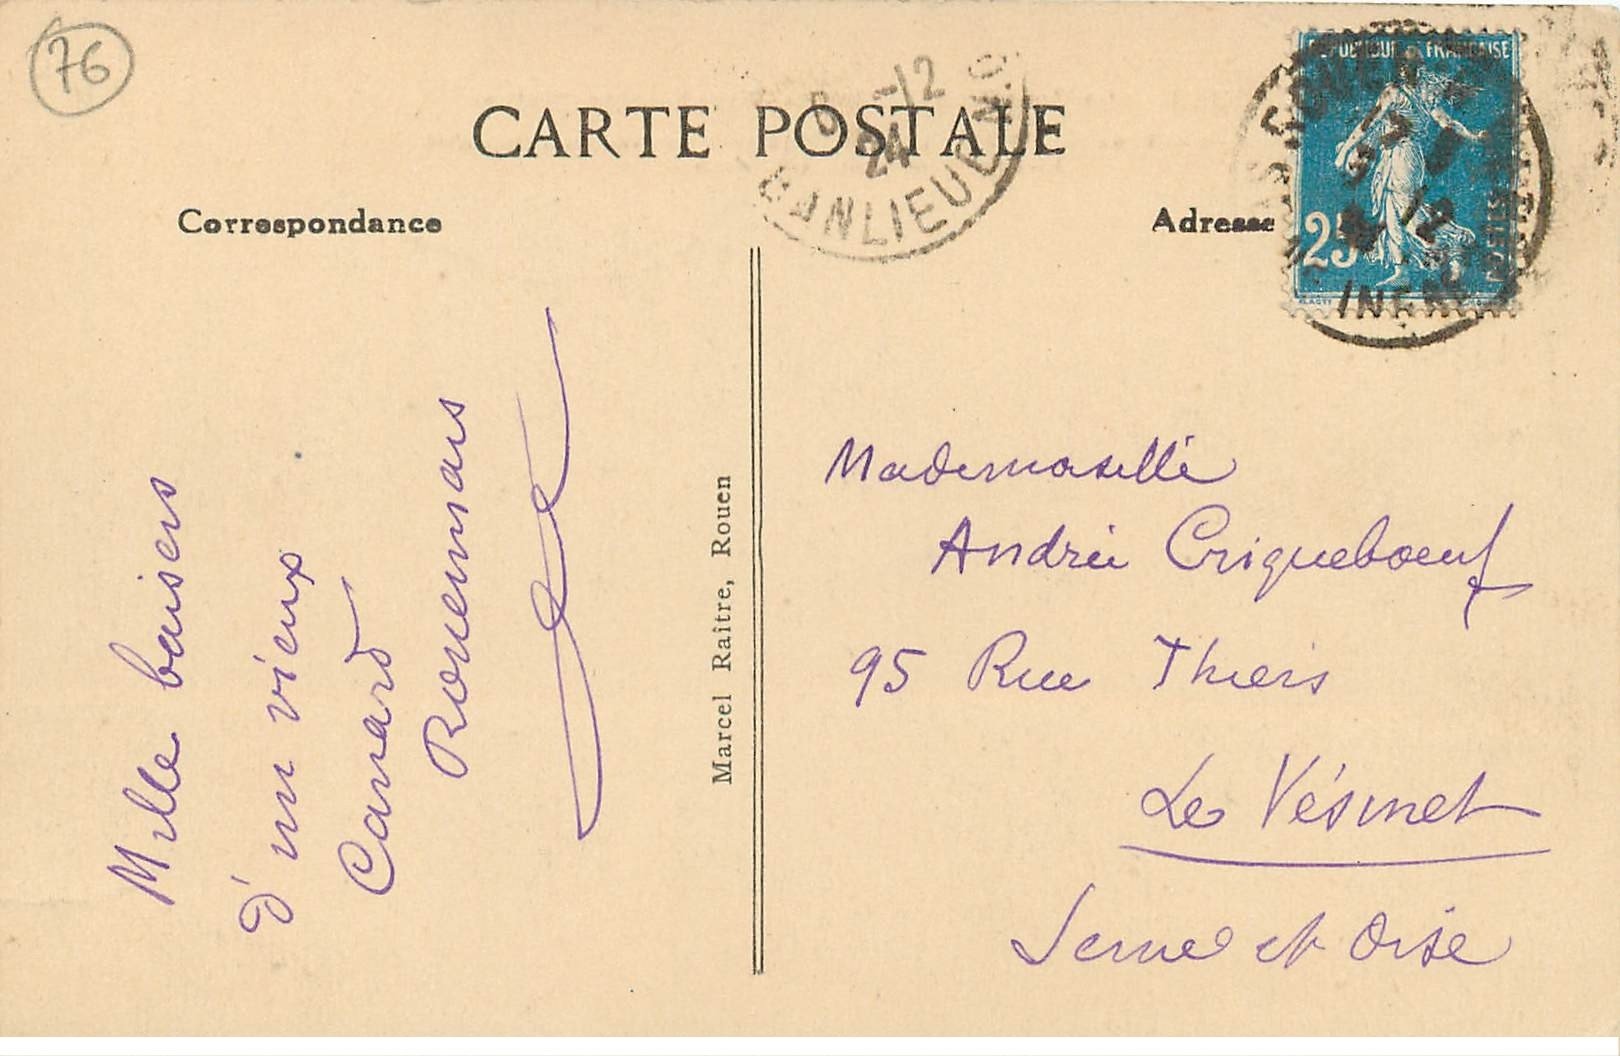 76
CARTE POSTALE
Correspondance
Adresse
-12
24
BANLIEUE
REPUBLIQUE FRANCAISE
25
ROUEN
12
INFRE
Mille baisers
d'un vieux
Canard
Rouennais
Marcel Raître, Rouen
Mademoiselle
Andrée Criqueboeuf
95 Rue Thiers
Le Vésinet
Seine et Oise